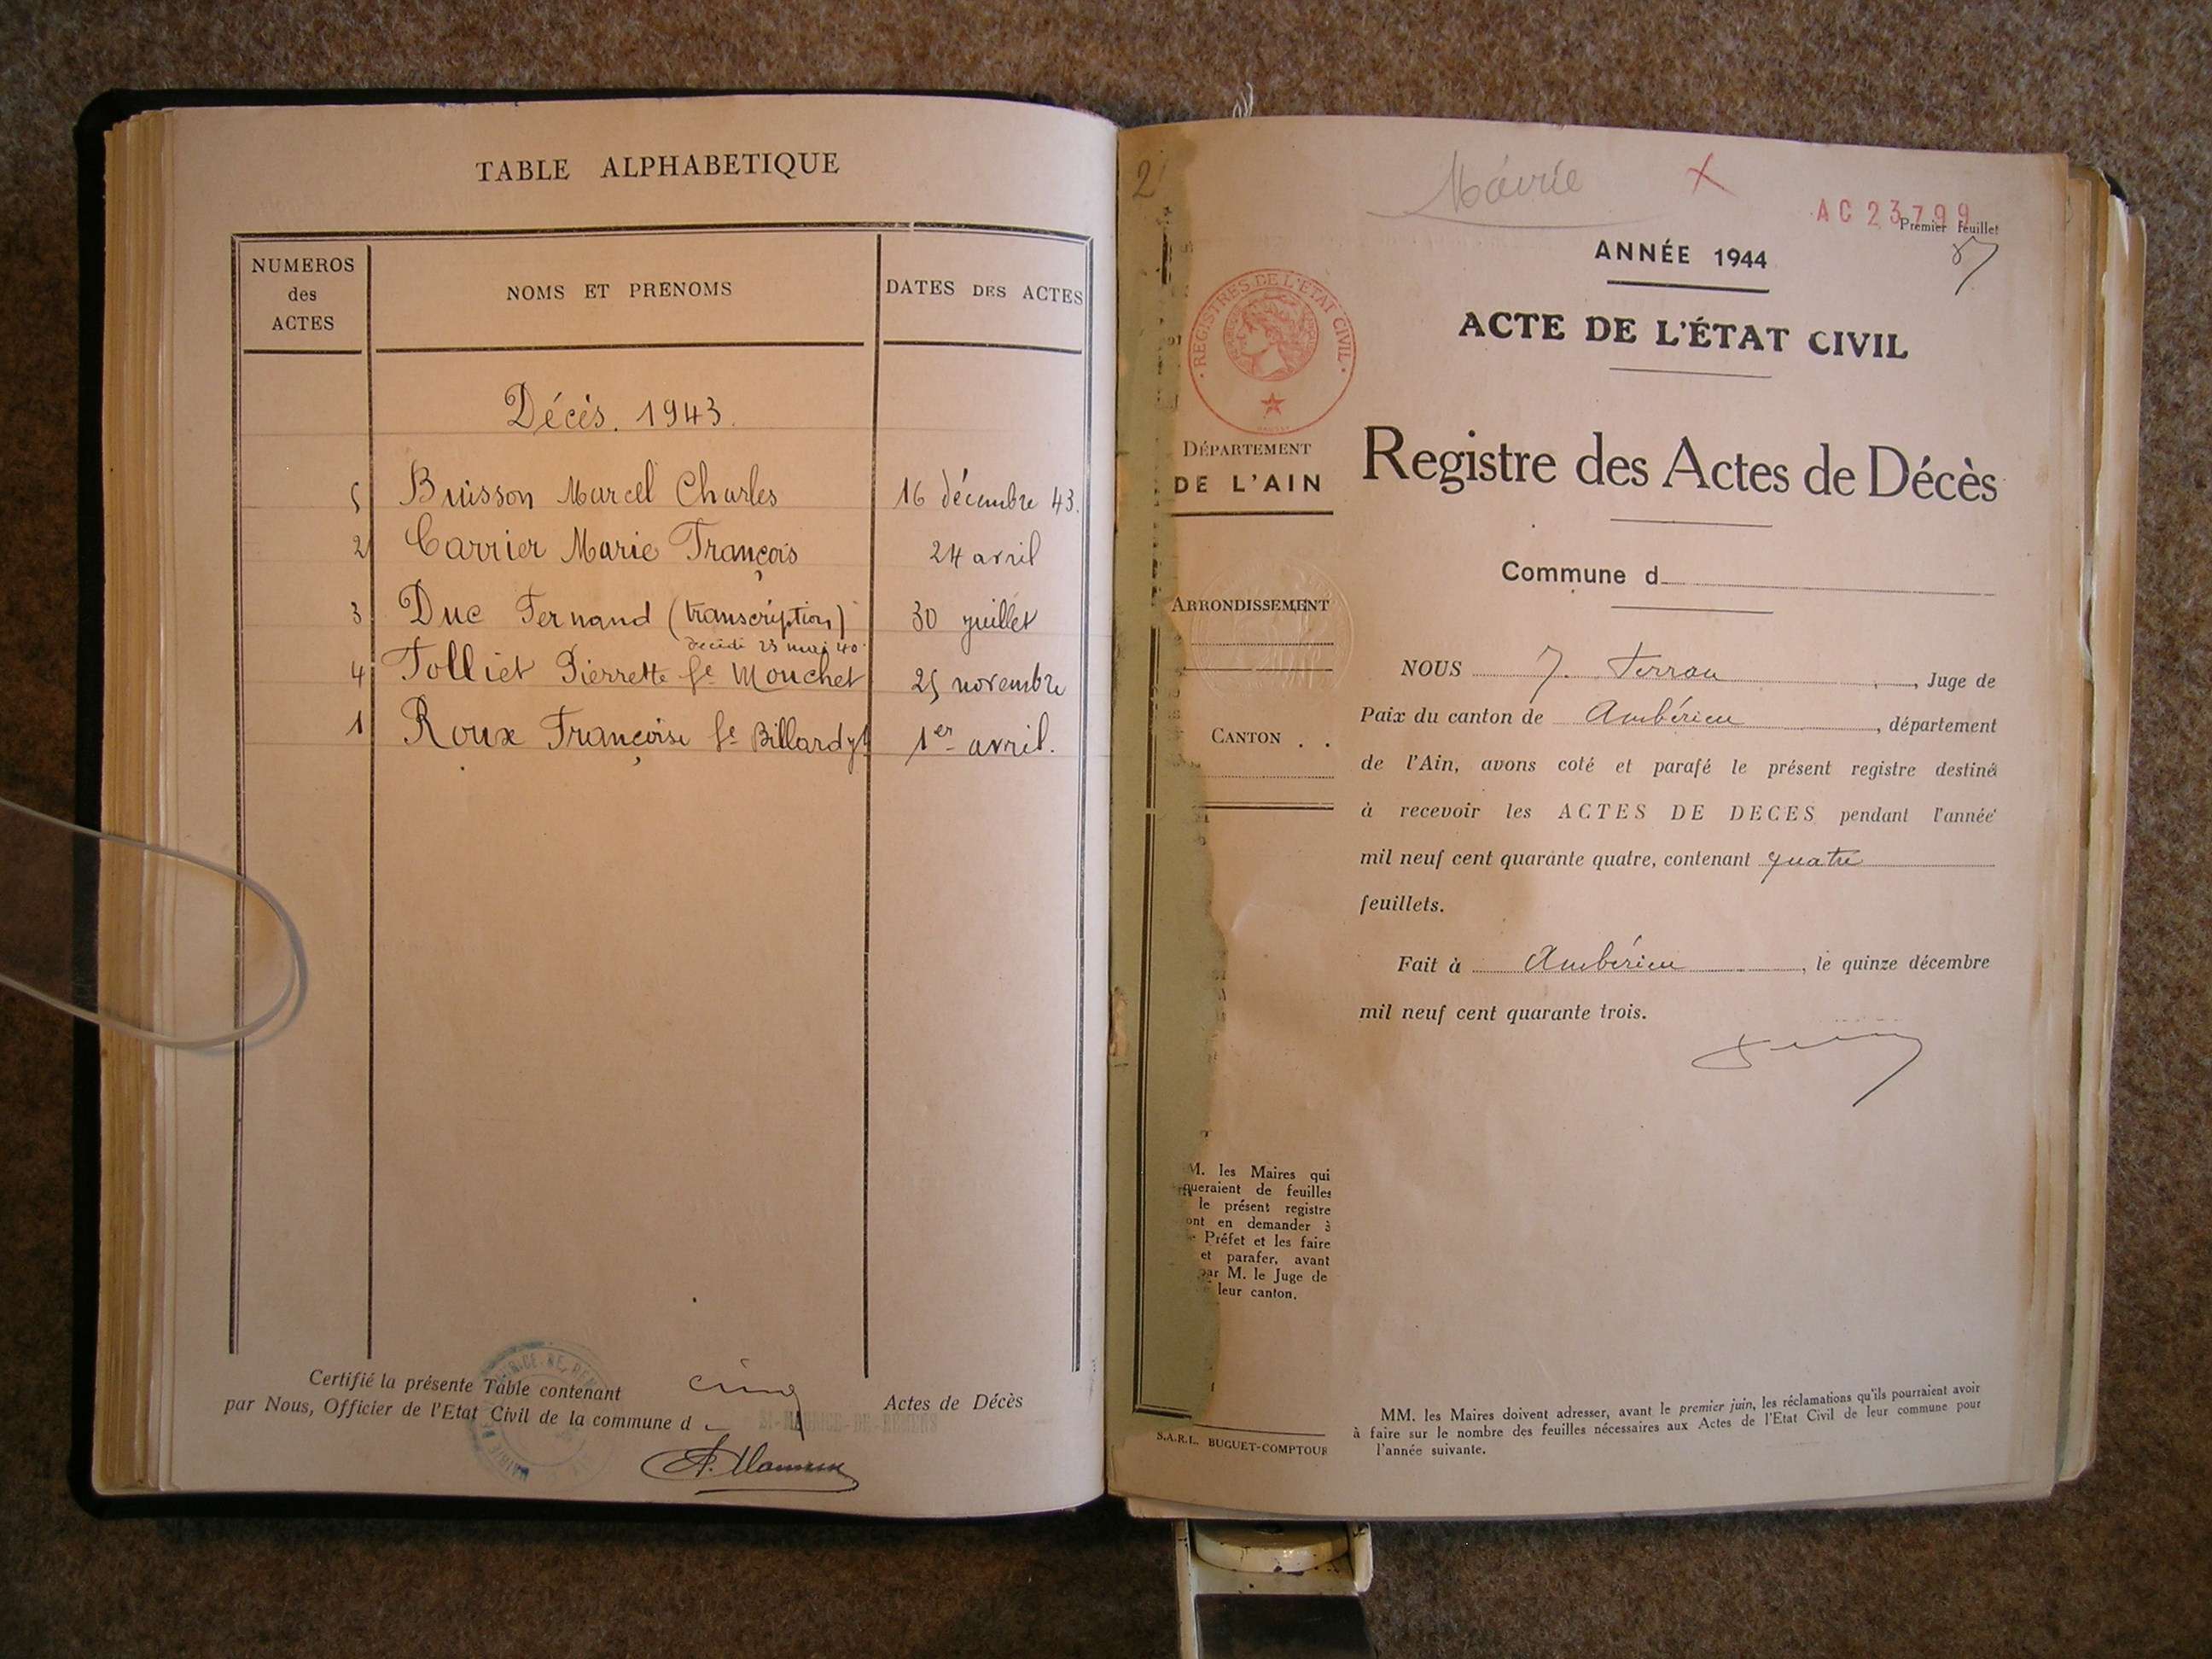 TABLE ALPHABETIQUE
NUMEROS
des
ACTES
NOMS ET PRENOMS
DATES DES ACTES
Décès. 1943.
5 Buisson Marcel Charles 16 décembre 43.
2 Carrier Marie François 24 avril
3 Duc Fernand (transcription) 30 juillet
décédé 23 mai 40
4 Tolliet Pierrette fe Mouchet 25 novembre
1 Roux Françoise fe Billardy 1er avril.
Certifié la présente Table contenant cinq Actes de Décès
par Nous, Officier de l'Etat Civil de la commune d ST-MAURICE-DE-REMENS
2
Mairie X
AC 23799
Premier feuillet
ANNÉE 1944
ACTE DE L'ÉTAT CIVIL
REGISTRES DE L'ETAT CIVIL
DÉPARTEMENT
DE L'AIN
Registre des Actes de Décès
Commune d
ARRONDISSEMENT
CANTON . .
NOUS J. Ferran, Juge de
Paix du canton de Ambérieu, département
de l'Ain, avons coté et parafé le présent registre destiné
à recevoir les ACTES DE DECES pendant l'année
mil neuf cent quarante quatre, contenant quatre
feuillets.
Fait à Ambérieu, le quinze décembre
mil neuf cent quarante trois.
M. les Maires qui
queraient de feuilles
le présent registre
ont en demander à
Préfet et les faire
et parafer, avant
par M. le Juge de
leur canton.
S.A.R.L. BUGUET-COMPTOUR
MM. les Maires doivent adresser, avant le premier juin, les réclamations qu'ils pourraient avoir
à faire sur le nombre des feuilles nécessaires aux Actes de l'Etat Civil de leur commune pour
l'année suivante.